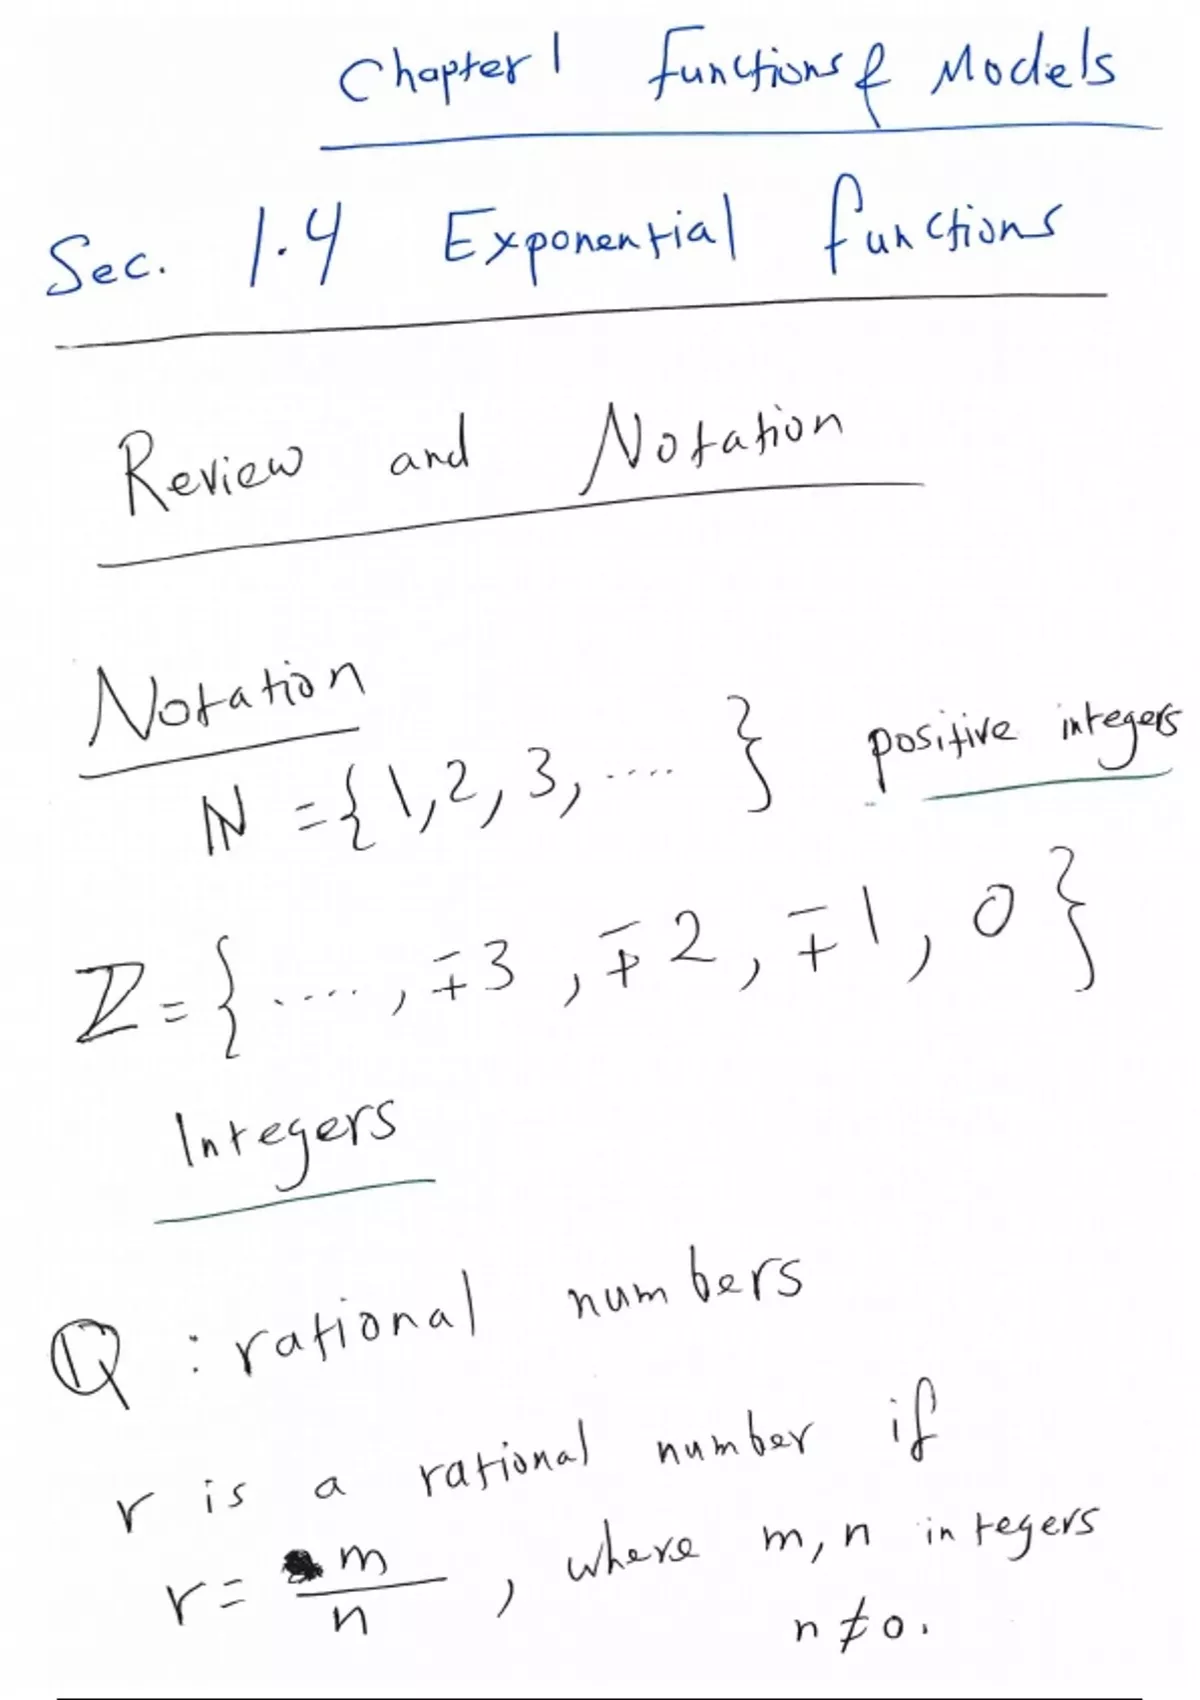 Chapter 1 Functions & Models
Sec. 1.4 Exponential functions
Review and Notation
Notation
ℕ = {1, 2, 3, .... } positive integers
ℤ = { ...., ∓3, ∓2, ∓1, 0 }
Integers
ℚ : rational numbers
r is a rational number if
r = m/n, where m, n integers
n ≠ 0.